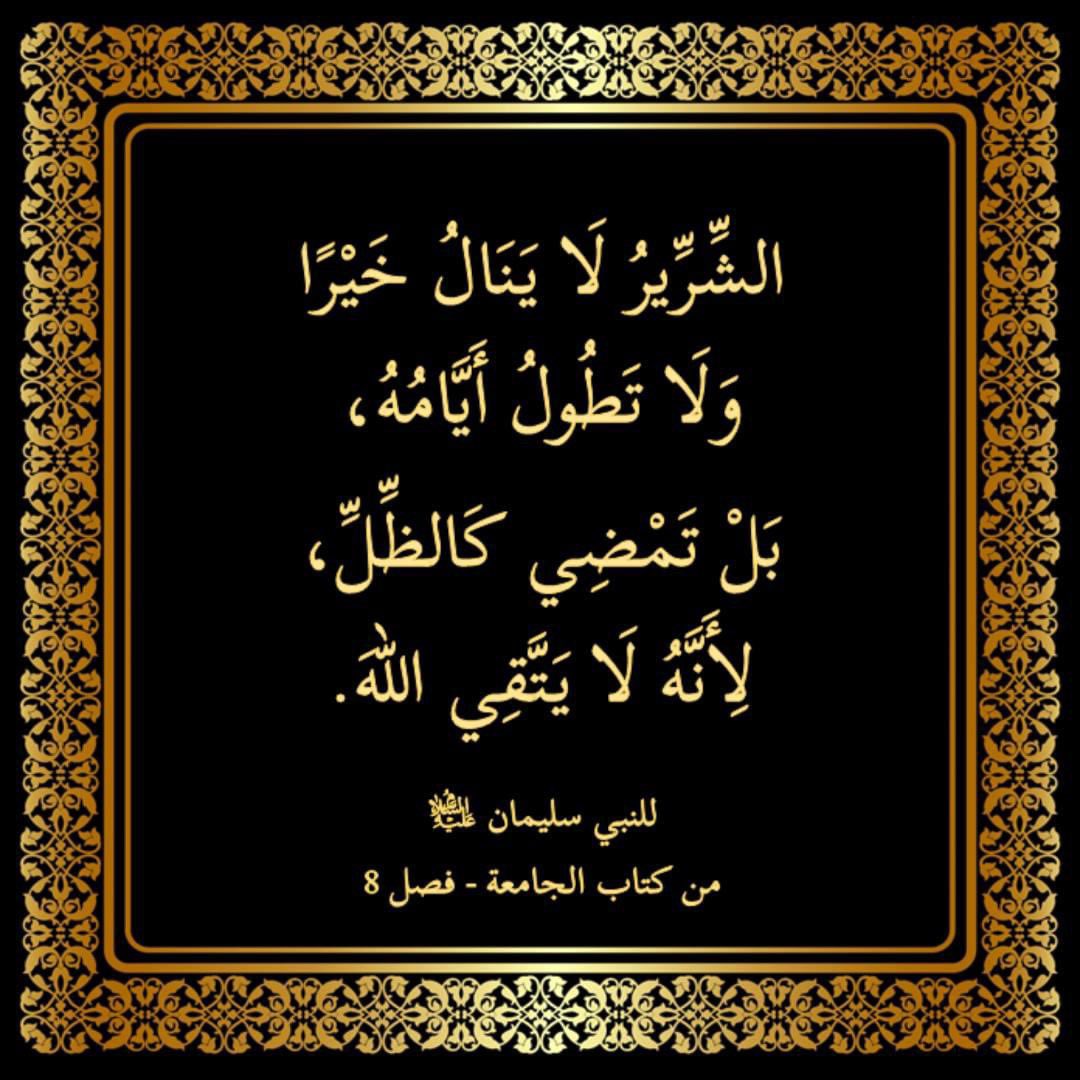 الشِّرِّيرُ لَا يَنَالُ خَيْرًا
وَلَا تَطُولُ أَيَّامُهُ،
بَلْ تَمْضِي كَالظِّلِّ،
لِأَنَّهُ لَا يَتَّقِي اللهَ.
للنبي سليمان عليه السلام
من كتاب الجامعة - فصل 8